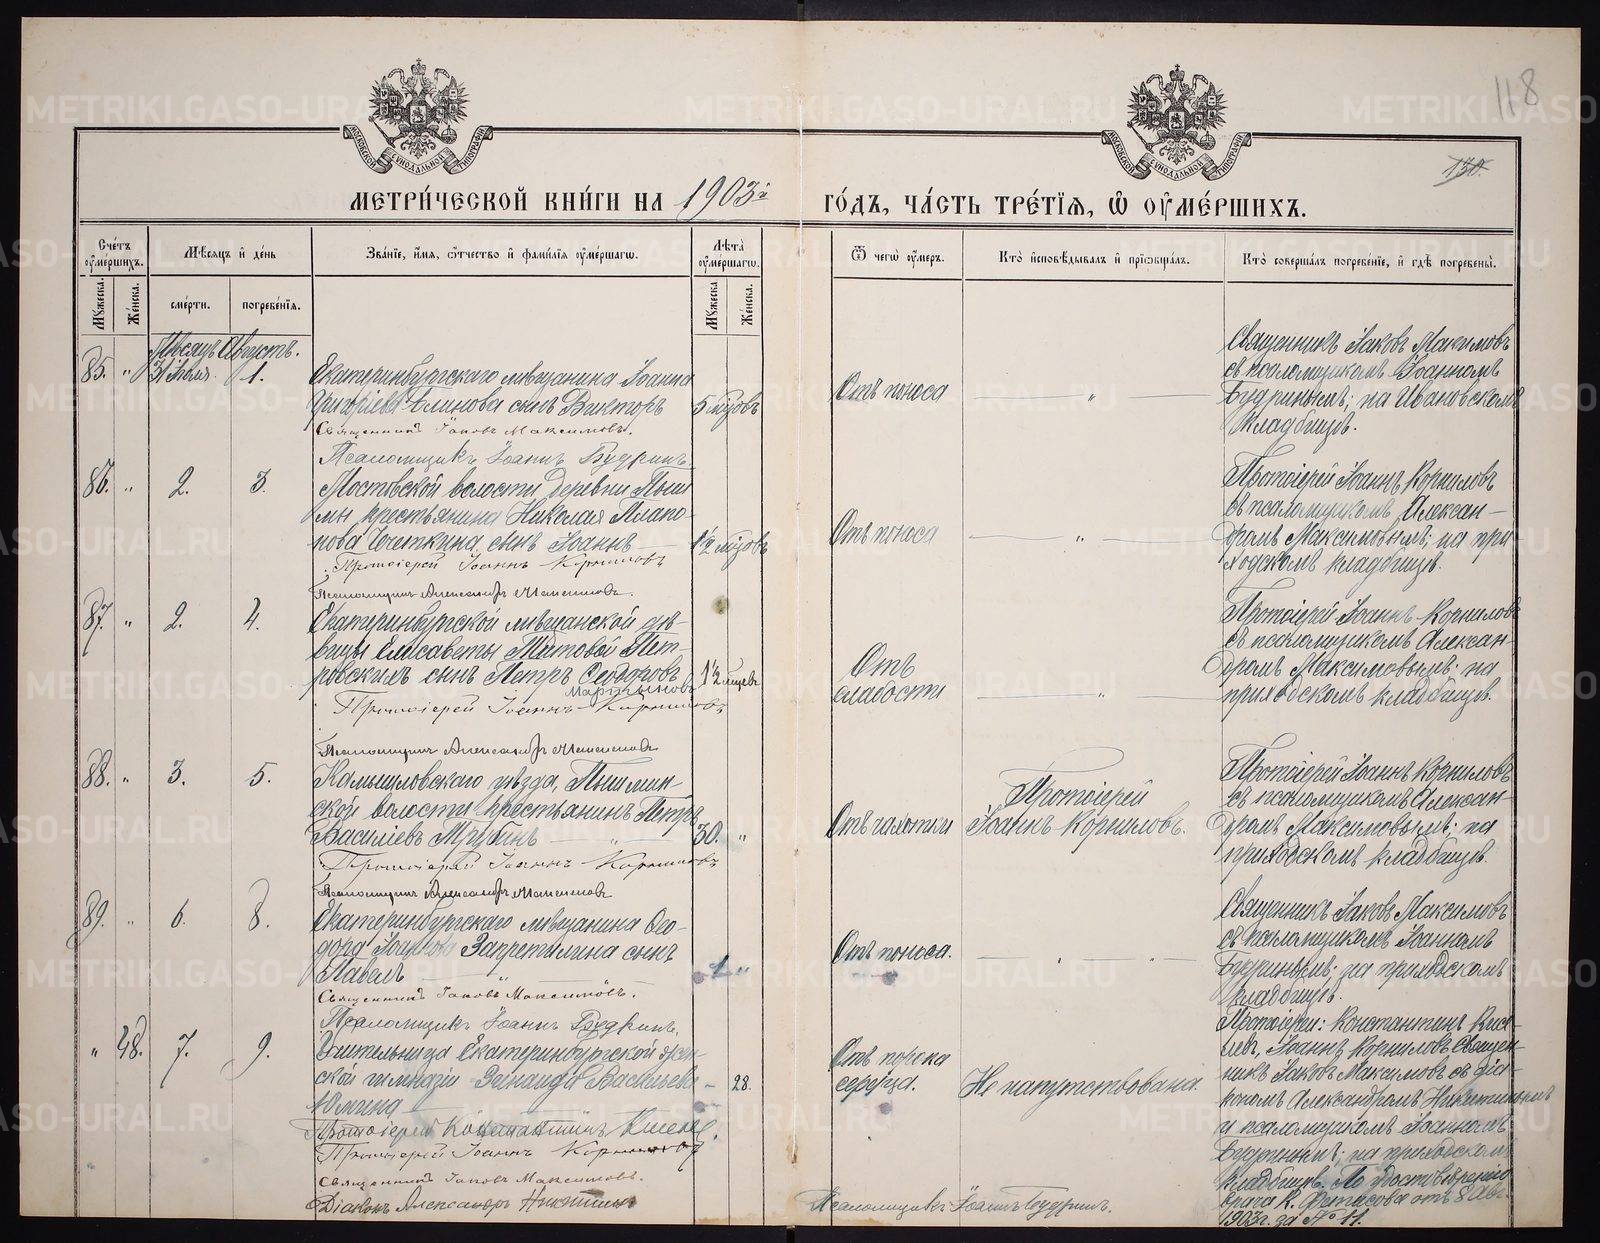 118
130.
МОСКОВСКОЙ СѴНОДАЛЬНОЙ ТИПОГРАФІИ
МОСКОВСКОЙ СѴНОДАЛЬНОЙ ТИПОГРАФІИ
МЕТРИ́ЧЕСКОЙ КНИ́ГИ НА 1903й ГО́ДЪ, ЧА́СТЬ ТРЕ́ТІѦ, Ѡ ОУМЕ́РШИХЪ.
Сче́тъ оуме́ршихъ.
Мꙋжеска.
Же́нска.
Мѣсѧцъ и҆ де́нь
сме́рти.
погребе́нїѧ.
Зва́нїе, и҆́мѧ, ѻ҆́тчество и҆ фами́лїѧ оуме́ршагѡ.
Лѣта̀ оуме́ршагѡ.
Мꙋжеска
Же́нска.
Ѿ чегѡ̀ оу́меръ.
Кто̀ и҆сповѣ́дывалъ и҆ прїѡбща́лъ.
Кто̀ соверша́лъ погребе́нїе, и҆ гдѣ̀ погребены̀.
Мѣсяцъ Августъ.
85. " 31 Іюля. 1.
Екатеринбургскаго мѣщанина Іоанна
Григоріева Блинова сынъ Викторъ 5 м҃цовъ
Священникъ Іаковъ Максимовъ.
Псаломщикъ Іоаннъ Будринъ.
Отъ поноса "
Священникъ Іаковъ Максимовъ
съ псаломщикомъ Іоанномъ
Будринымъ; на Ивановскомъ
кладбищѣ.
86. " 2. 3.
Мостовской волости деревни Пыш
мы крестьянина Николая Плато-
нова сынъ Іоаннъ 1½ м҃цовъ
Протоіерей Іоаннъ Корниловъ
Псаломщикъ Александръ Максимовъ.
Отъ поноса "
Протоіерей Іоаннъ Корниловъ
съ псаломщикомъ Алексан-
дромъ Максимовымъ; на при
ходскомъ кладбищѣ.
87. " 2. 4.
Екатеринбургской мѣщанской дѣ-
вицы Елисаветы Титовой Пет-
ровскихъ сынъ Петръ Ѳеодоровъ 1½ мѣсяцъ
Мартыновъ
Протоіерей Іоаннъ Корниловъ
Псаломщикъ Александръ Максимовъ
Отъ
слабости "
Протоіерей Іоаннъ Корниловъ
съ псаломщикомъ Алексан-
дромъ Максимовымъ; на
приходскомъ кладбищѣ.
88. " 3. 5.
Камышловскаго уѣзда, Пышмин-
ской волости крестьянинъ Петръ
Василіевъ Трубинъ " 30. "
Протоіерей Іоаннъ Корниловъ
Псаломщикъ Александръ Максимовъ
Отъ чахотки
Протоіерей
Іоаннъ Корниловъ.
Протоіерей Іоаннъ Корниловъ
съ псаломщикомъ Алексан-
дромъ Максимовымъ; на
приходскомъ кладбищѣ.
89. " 6. 8.
Екатеринбургскаго мѣщанина Ѳео-
дора Запретилина сынъ
Павелъ " 1 "
Священникъ Іаковъ Максимовъ.
Псаломщикъ Іоаннъ Будринъ.
Отъ поноса. "
Священникъ Іаковъ Максимовъ
съ псаломщикомъ Іоанномъ
Будринымъ; на приходскомъ
кладбищѣ.
" 48. 7. 9.
Учительница Екатеринбургской жен-
ской гимназіи Зинаида Васильева - 28.
Юмина
Протоіерей Константинъ
Протоіерей Іоаннъ Корниловъ
Священникъ Іаковъ Максимовъ.
Діаконъ Александръ Никитинъ
Псаломщикъ Іоаннъ Будринъ.
Отъ порока
сердца.
Не напутствована.
Протоіереи: Константинъ
Іоаннъ Корниловъ Священ-
никъ Іаковъ Максимовъ съ діа-
кономъ Александромъ Никитинымъ
и псаломщикомъ Іоанномъ
Будринымъ; на приходскомъ
кладбищѣ. По удостовѣренію
врача К. отъ 8 Авг.
1903 г. за № 11.